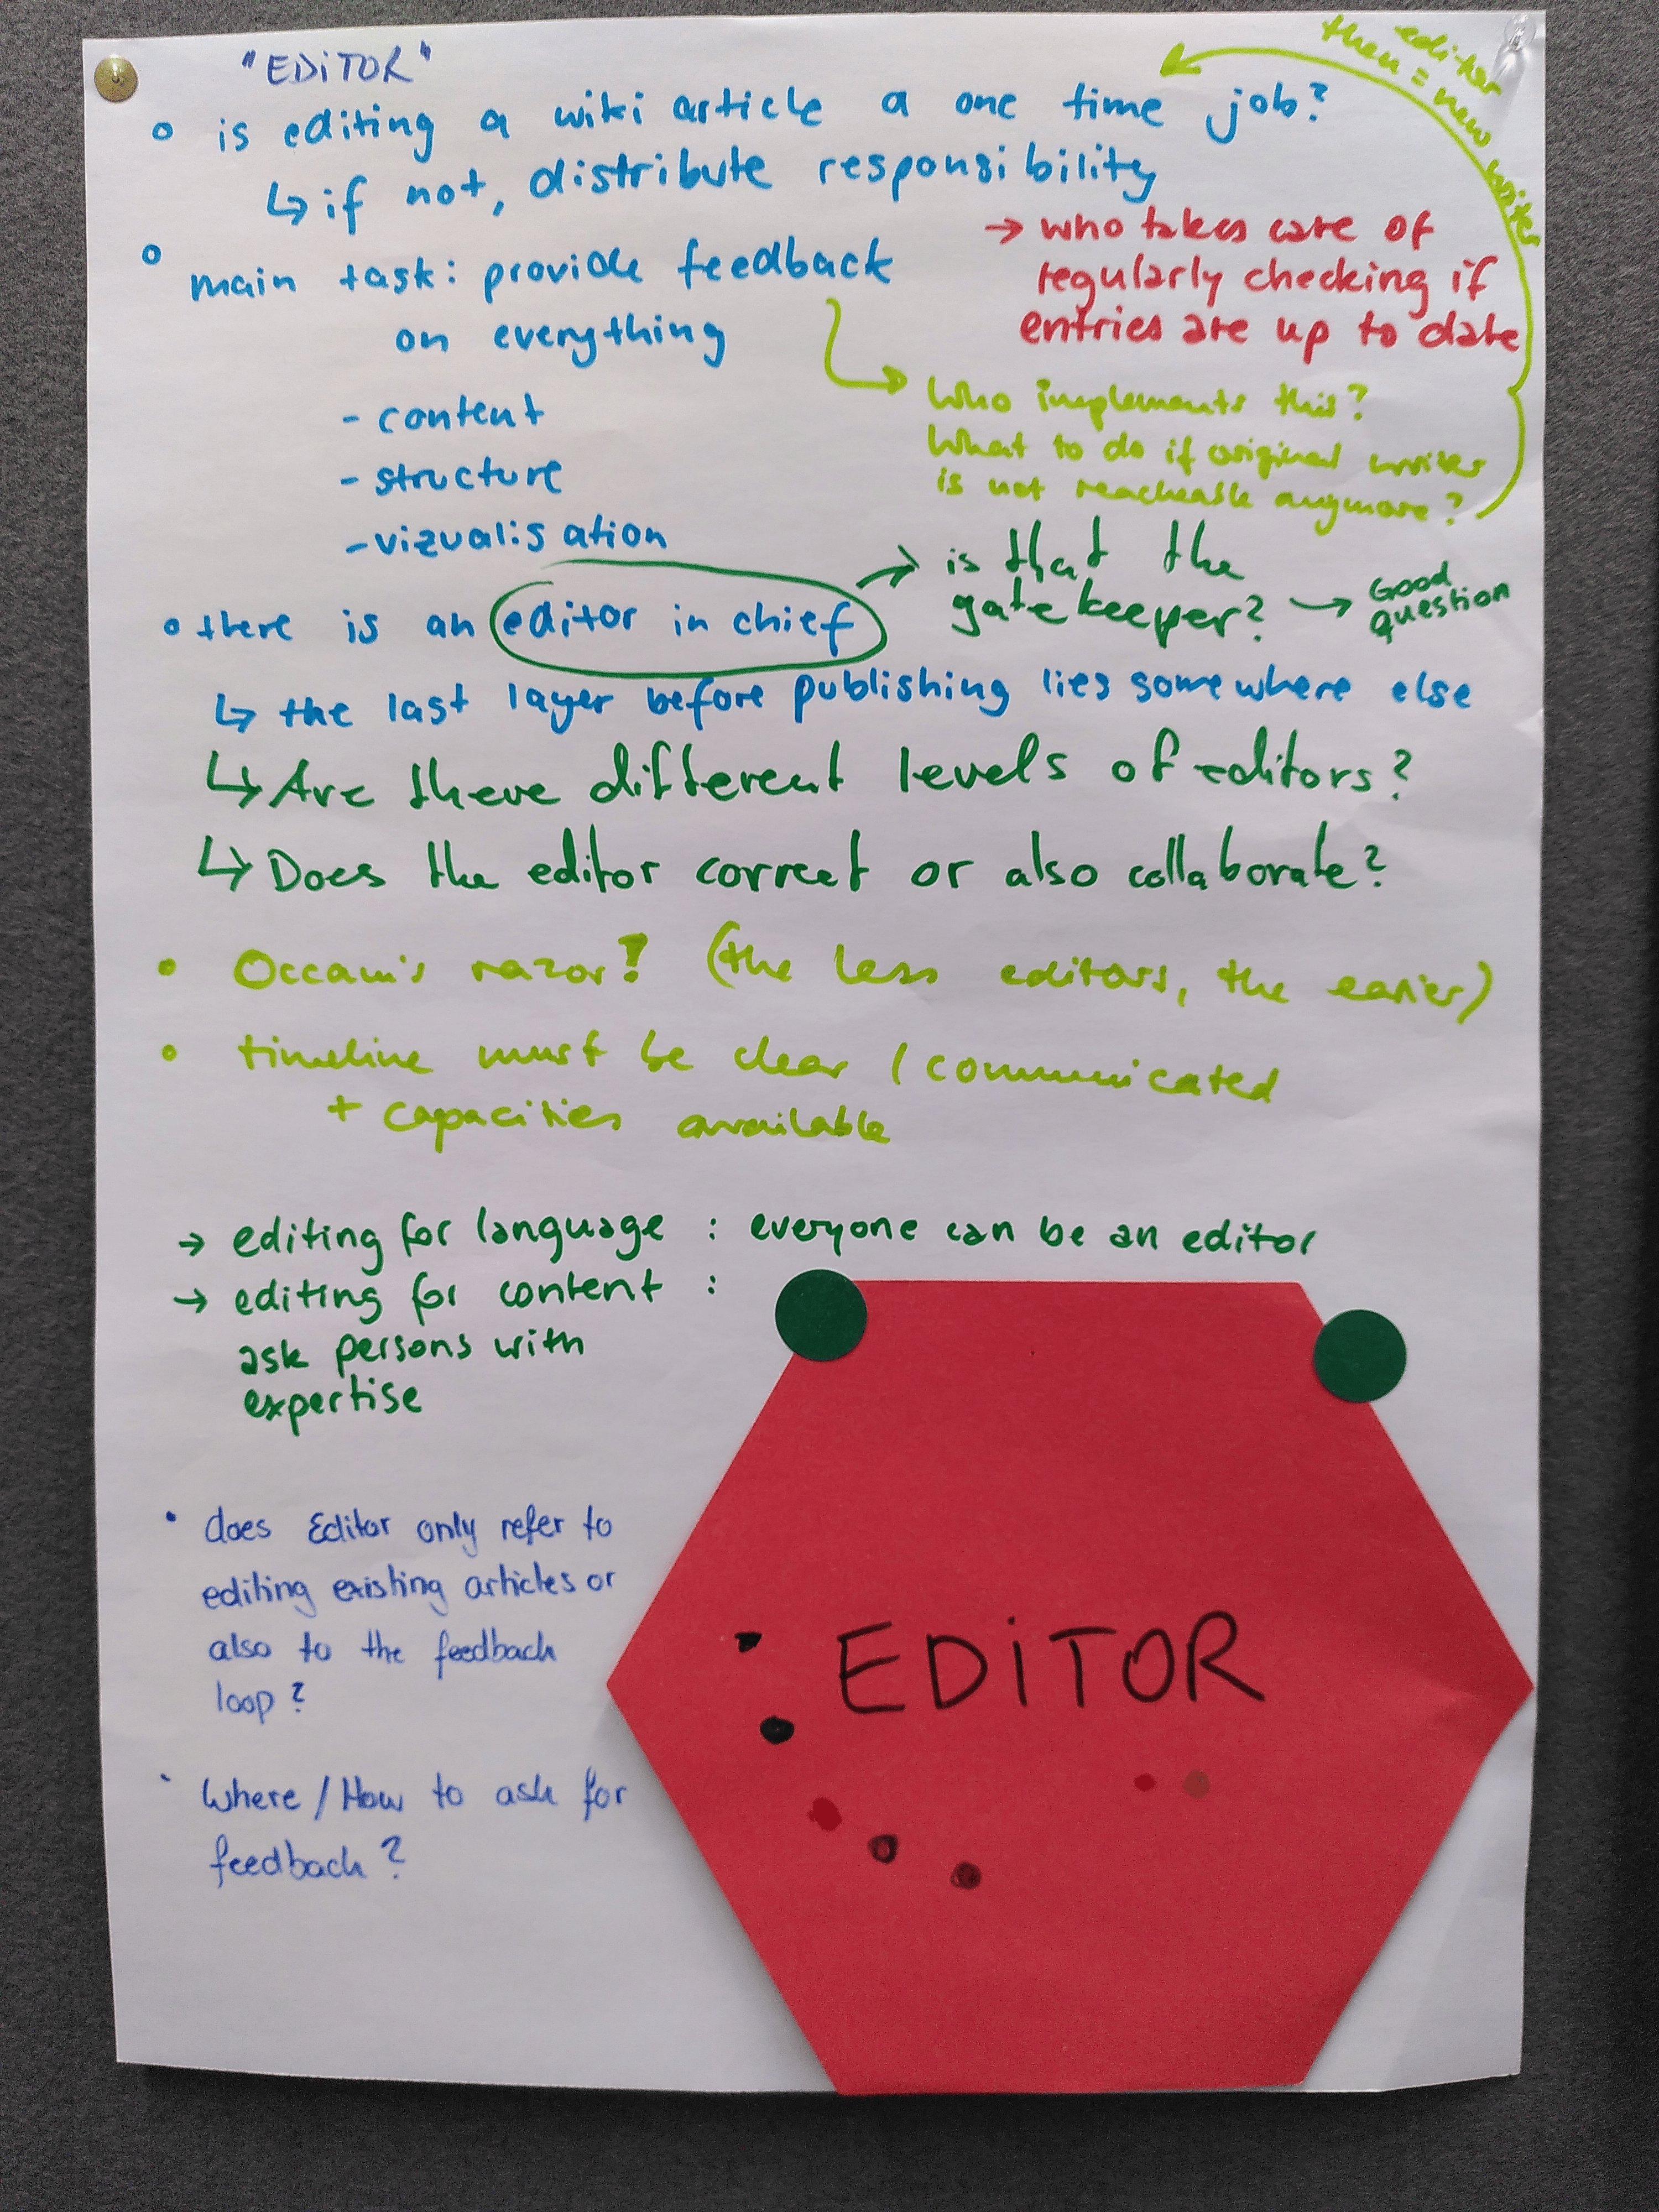 "EDiTOR"
editor
then = new writer
○ is editing a wiki article a one time job?
↳ if not, distribute responsibility
→ who takes care of
regularly checking if
entries are up to date
○ main task: provide feedback
on everything
- content
- structure
- vizualisation
→ Who implements this?
What to do if original writer
is not reacheable anymore?
○ there is an editor in chief
→ is that the
gate keeper? → Good
question
↳ the last layer before publishing lies somewhere else
↳ Are there different levels of editors?
↳ Does the editor correct or also collaborate?
• Occam's razor! (the less editors, the easier)
• timeline must be clear / communicated
+ capacities available
→ editing for language : everyone can be an editor
→ editing for content :
ask persons with
expertise
• does Editor only refer to
editing existing articles or
also to the feedback
loop?
• Where / How to ask for
feedback?
EDiTOR